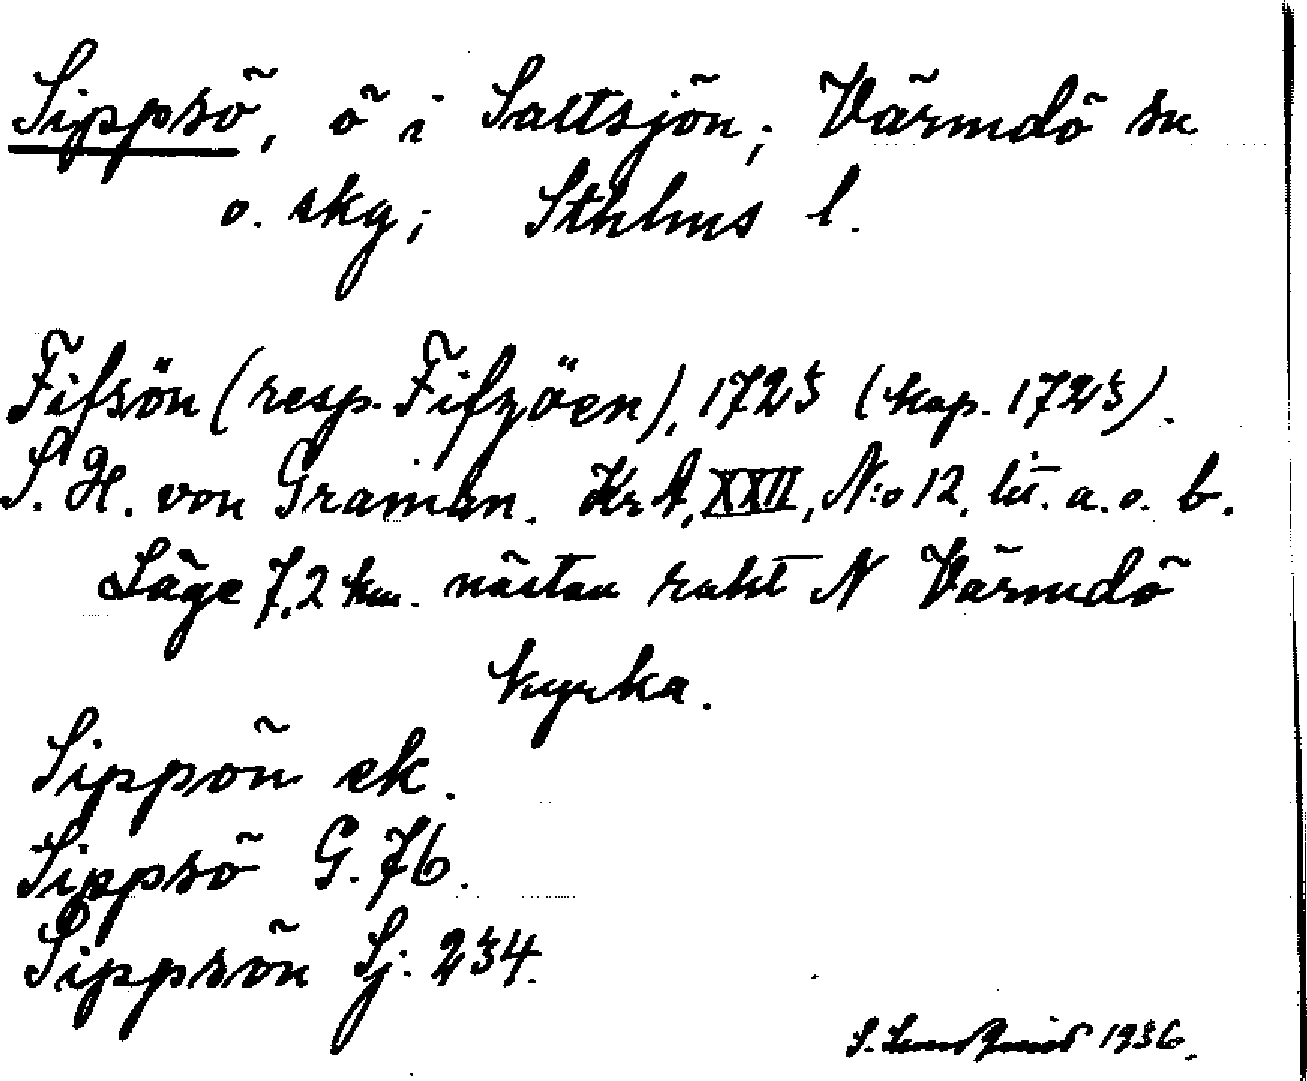 Sippsö, ö i Saltsjön; Värmdö sn
o. skg; Sthlms l.
Fifsön (resp. Fifzöen), 1723 (kop. 1723).
S. H. von Gramán. KrA, XXII, N:o 12. lit. a. o. b.
Läge 7,2 km. nästan rakt N Värmdö
kyrka.
Sippön ek.
Sippsö G. 76.
Sippsön Sj. 234.
S. 1936.